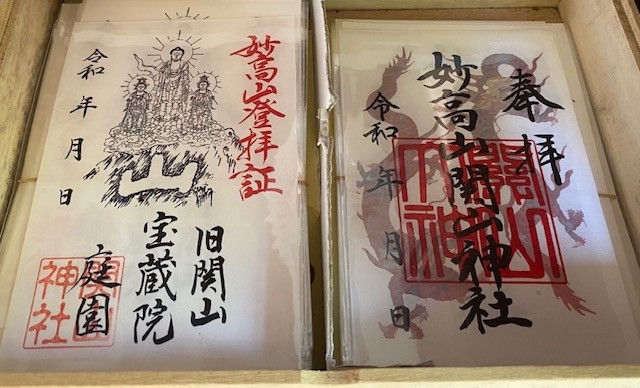 妙高山登拝証
令和 年 月 日
旧関山
宝蔵院
庭園
関山神社
奉拝
妙高山関山神社
令和 年 月 日
関山神社